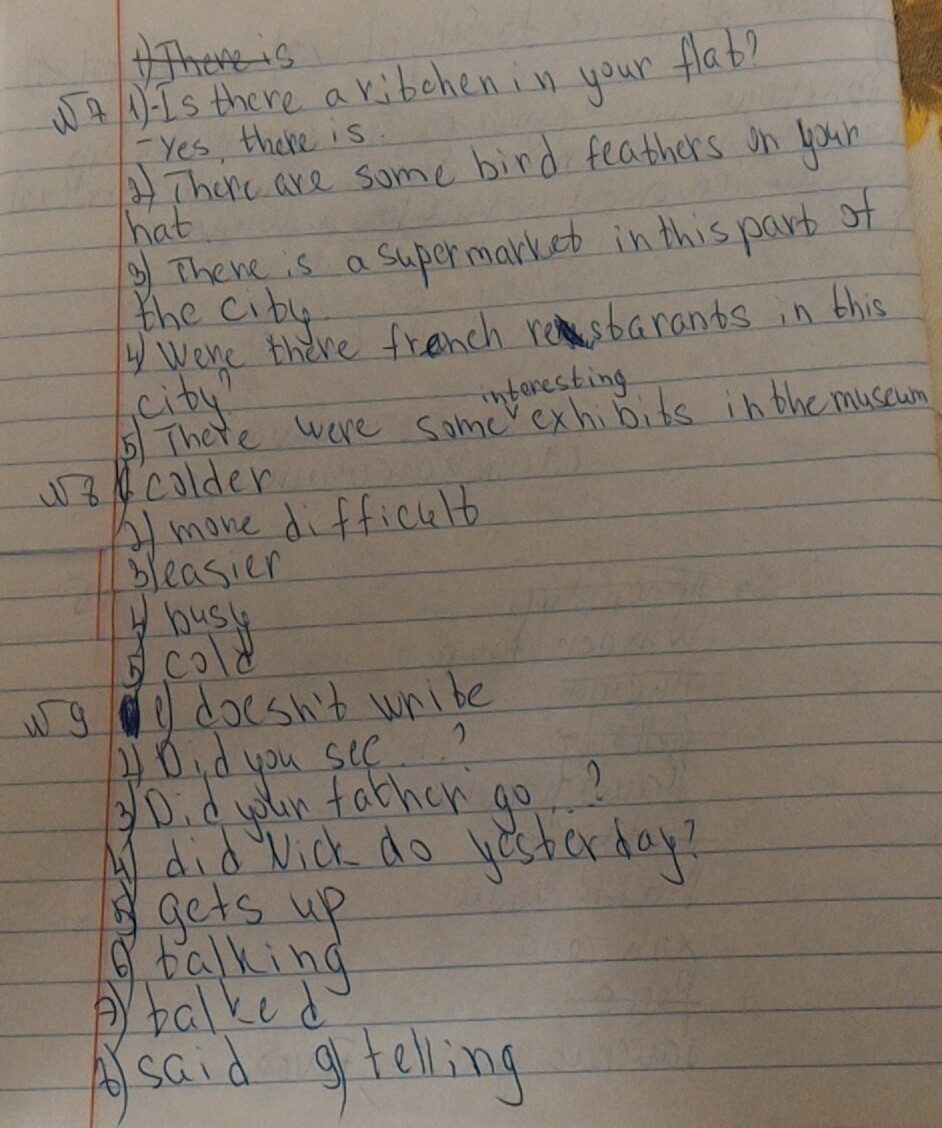 1) There is
№7 1) - Is there a kitchen in your flat?
- Yes, there is.
2) There are some bird feathers on your
hat.
3) There is a supermarket in this part of
the city
4) Were there french restarants in this
city?
interesting
5) There were some exhibits in the museum
№8 1) colder
2) more difficult
3) easier
4) busy
5) cold
№9 1) doesn't write
2) Did you see...?
3) Did your father go...?
4) did Nick do yesterday?
5) gets up
6) talking
7) talked
8) said 9) telling